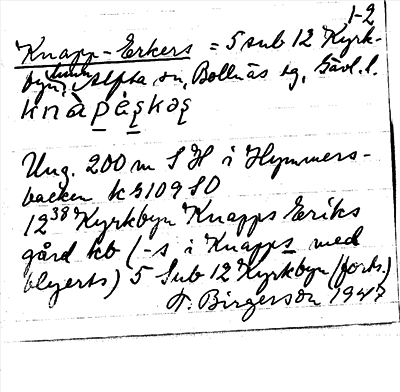 1-2
Knapp-Erkers = 5 sub 12 Kyrk-
byn, Alfta sn, Bollnäs tg, Gävl. l.
knàpèşkəş
Ung. 200 m S H i Hymmers-
backen k 5109 SO
12³⁸ Kyrkbyn Knapps Eriks
gård kb (-s i Knapps med
blyerts) 5 Sub 12 Kyrkbyn (forts.)
T. Birgerson 1947